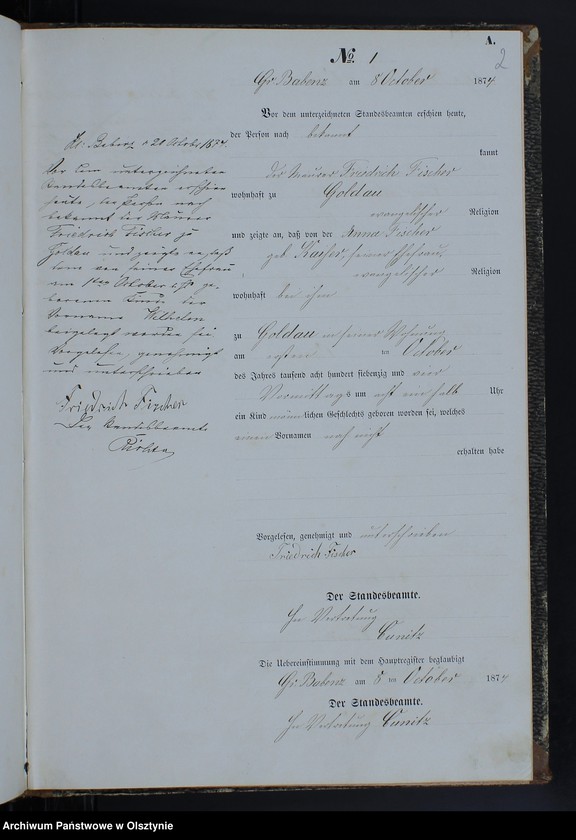 A.
2
№ 1
Gr Babenz am 8 October 1874
Vor dem unterzeichneten Standesbeamten erschien heute,
der Person nach bekannt
kannt
der Maurer Friedrich Fischer
wohnhaft zu Goldau
evangelischer Religion
und zeigte an, daß von der Anna Fischer
geb. Kaiser, seiner Ehefrau,
evangelischer Religion
wohnhaft bei ihm
zu Goldau in seiner Wohnung
am ersten ten October
des Jahres tausend acht hundert siebenzig und vier
Vormittags um acht ein halb Uhr
ein Kind männlichen Geschlechts geboren worden sei, welches
einen Vornamen noch nicht
erhalten habe
Vorgelesen, genehmigt und unterschrieben
Friedrich Fischer
Der Standesbeamte.
In Vertretung
Cunitz
Die Uebereinstimmung mit dem Hauptregister beglaubigt
Gr Babenz am 8 ten October 1874
Der Standesbeamte.
In Vertretung Cunitz
Gr. Babenz d 20 October 1874.
Vor dem unterzeichneten
Standesbeamten erschien
heute, der Person nach
bekannt der Maurer
Friedrich Fischer zu
Goldau und zeigte an, daß
dem von seiner Ehefrau
am 1ten October geborenen
Kinde der
Vorname Wilhelm
beigelegt worden sei
Vorgelesen, genehmigt
und unterschrieben
Friedrich Fischer
Der Standesbeamte
Archiwum Państwowe w Olsztynie